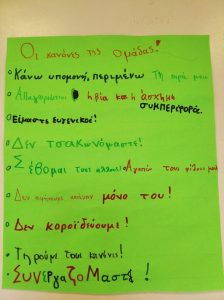 Οι κανόνες της ομάδας!
Κάνω υπομονή, περιμένω τη σειρά μου
Απαγορεύεται η βία και η άσχημη
συμπεριφορά.
Είμαστε ευγενικοί!
Δεν τσακωνόμαστε!
Σέβομαι τους άλλους! Αγαπάω τους φίλους μου
Δεν αφήνουμε κανέναν μόνο του!
Δεν κοροϊδεύουμε!
Τηρούμε τους κανόνες!
ΣΥΝεργαζοΜαστε!